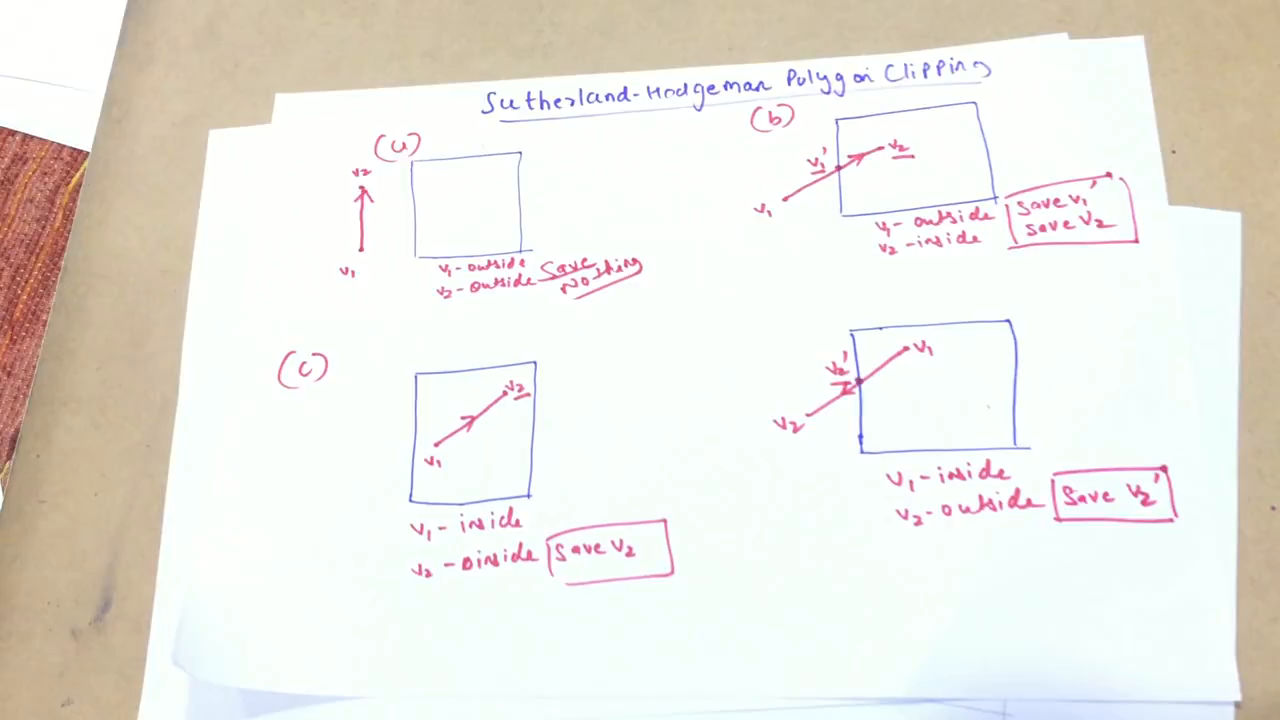 Sutherland-Hodgeman Polygon Clipping
(a)
v2
v1
v1-outside
v2-outside Save
Nothing
(b)
v1' v2
v1
v1-outside
v2-inside
Save v1'
Save v2
(c)
v2
v1
v1-inside
v2-oinside Save v2
v1
v2'
v2
v1-inside
v2-outside Save v2'